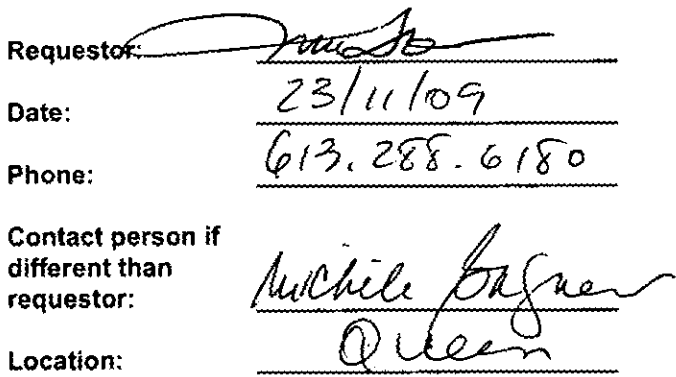 Requestor:
Date: 23/11/09
Phone: 613.288.6180
Contact person if
different than
requestor: Michele Gagner
Location: Queen